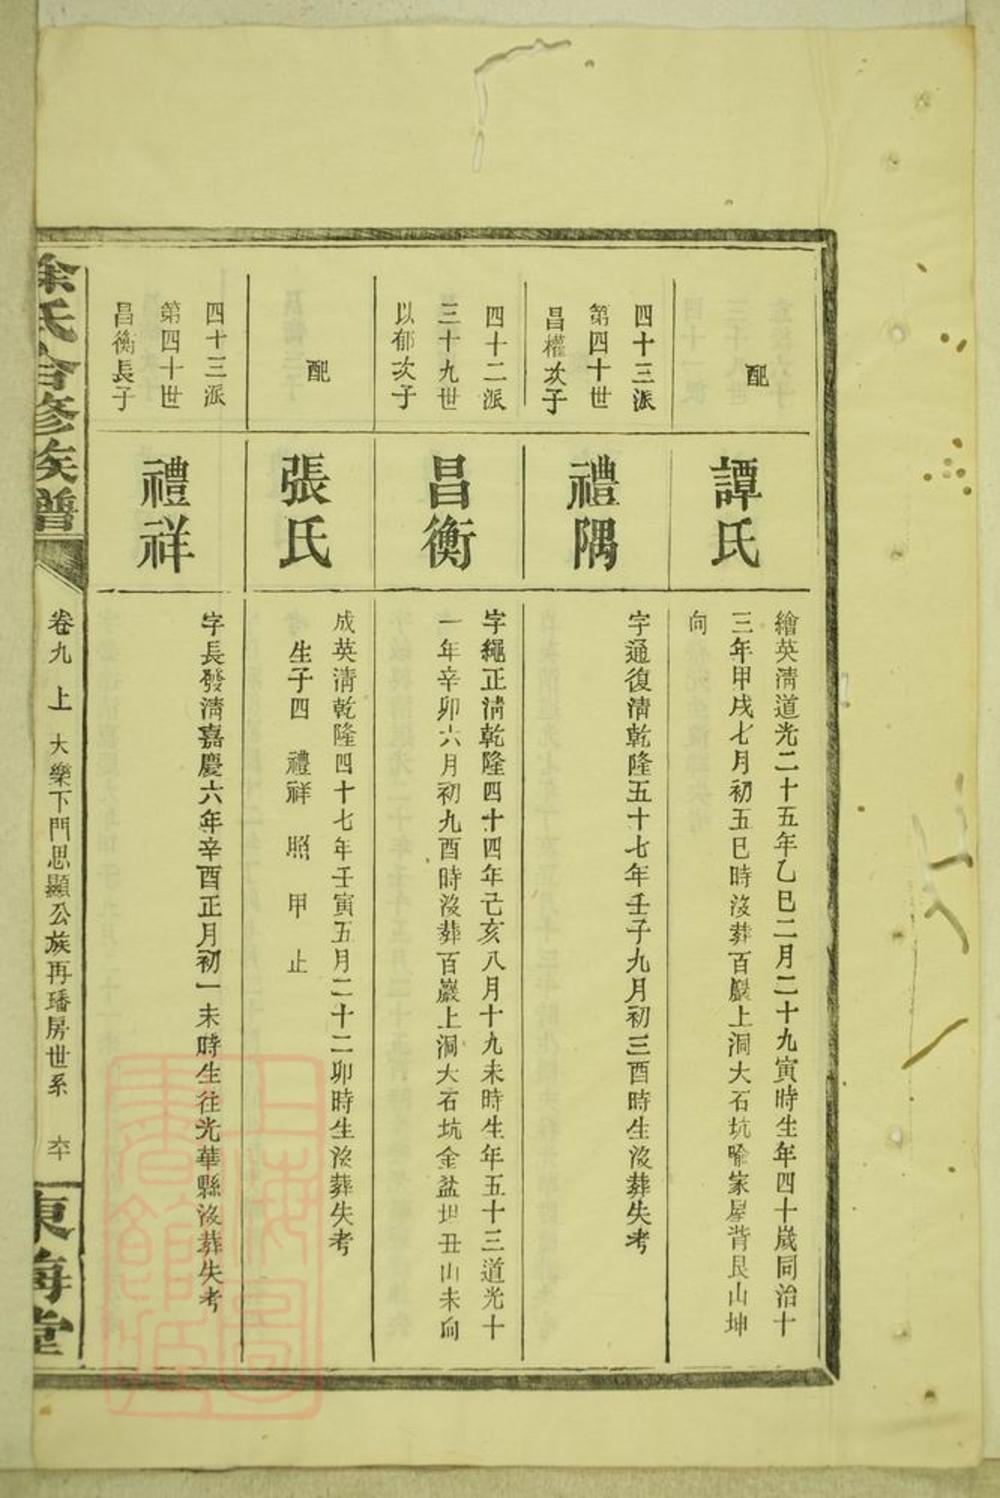 配
譚氏
繪英淸道光二十五年乙巳二月二十九寅時生年四十歲同治十
三年甲戌七月初五巳時沒葬百巖上洞大石坑喻家屋背艮山坤
向
四十三派
第四十世
昌權次子
禮隅
字通復淸乾隆五十七年壬子九月初三酉時生沒葬失考
四十二派
三十九世
以郁次子
昌衡
字繩正淸乾隆四十四年己亥八月十九未時生年五十三道光十
一年辛卯六月初九酉時沒葬百巖上洞大石坑金盆坦丑山未向
配
張氏
成英淸乾隆四十七年壬寅五月二十二卯時生沒葬失考
生子四 禮祥 照 甲 止
四十三派
第四十世
昌衡長子
禮祥
字長發淸嘉慶六年辛酉正月初一未時生往光華縣沒葬失考
徐氏合修族譜
卷九上 大樂下門思顯公族再璠房世系 六十
東海堂
上海圖書館藏